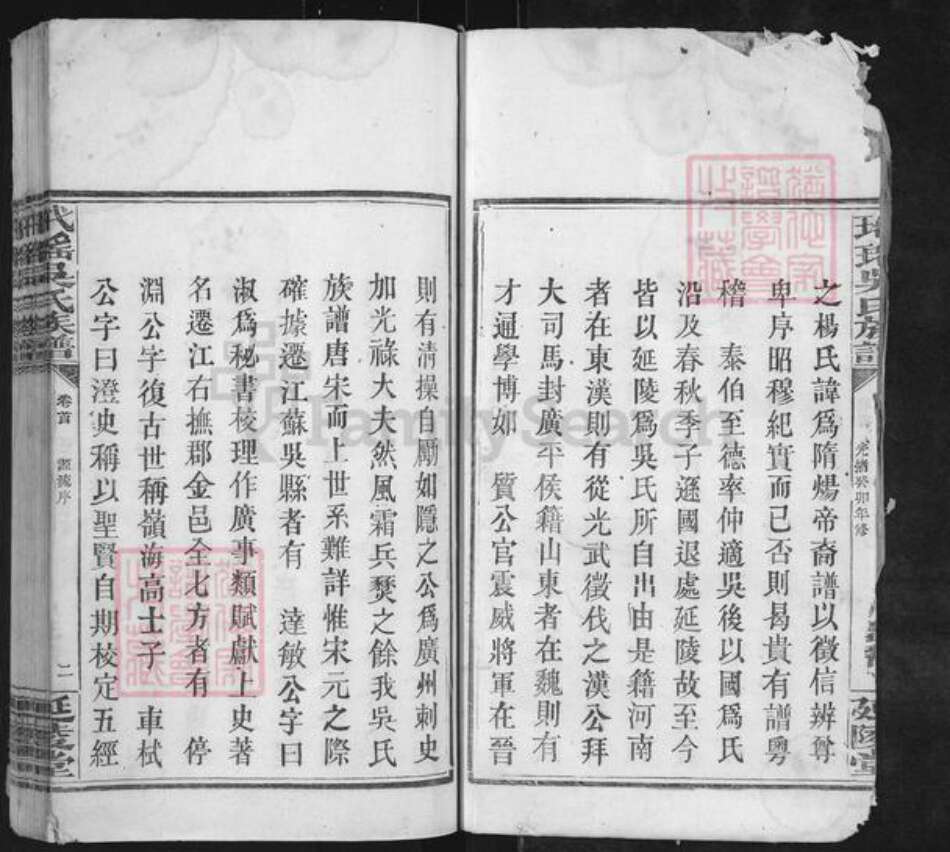 之楊氏諱爲隋煬帝裔譜以徵信辨尊
卑序昭穆紀實而已否則曷貴有譜粵
稽　泰伯至德率仲適吳後以國爲氏
沿及春秋季子遜國退處延陵故至今
皆以延陵爲吳氏所自出由是籍河南
者在東漢則有從光武徵伐之漢公拜
大司馬封廣平侯籍山東者在魏則有
才通學博如　質公官震威將軍在晉
則有清操自勵如隱之公爲廣州刺史
加光祿大夫然風霜兵燹之餘我吳氏
族譜唐宋而上世系難詳惟宋元之際
確據遷江蘇吳縣者有　達敏公字曰
淑爲秘書校理作廣事類賦獻上史著
名遷江右撫郡金邑全北方者有　停
淵公字復古世稱嶺海高士子　車栻
公字曰澄史稱以聖賢自期校定五經
吳氏族譜
卷首
源流序
二
延陵堂
光緒癸卯年修
延陵堂
FamilySearch